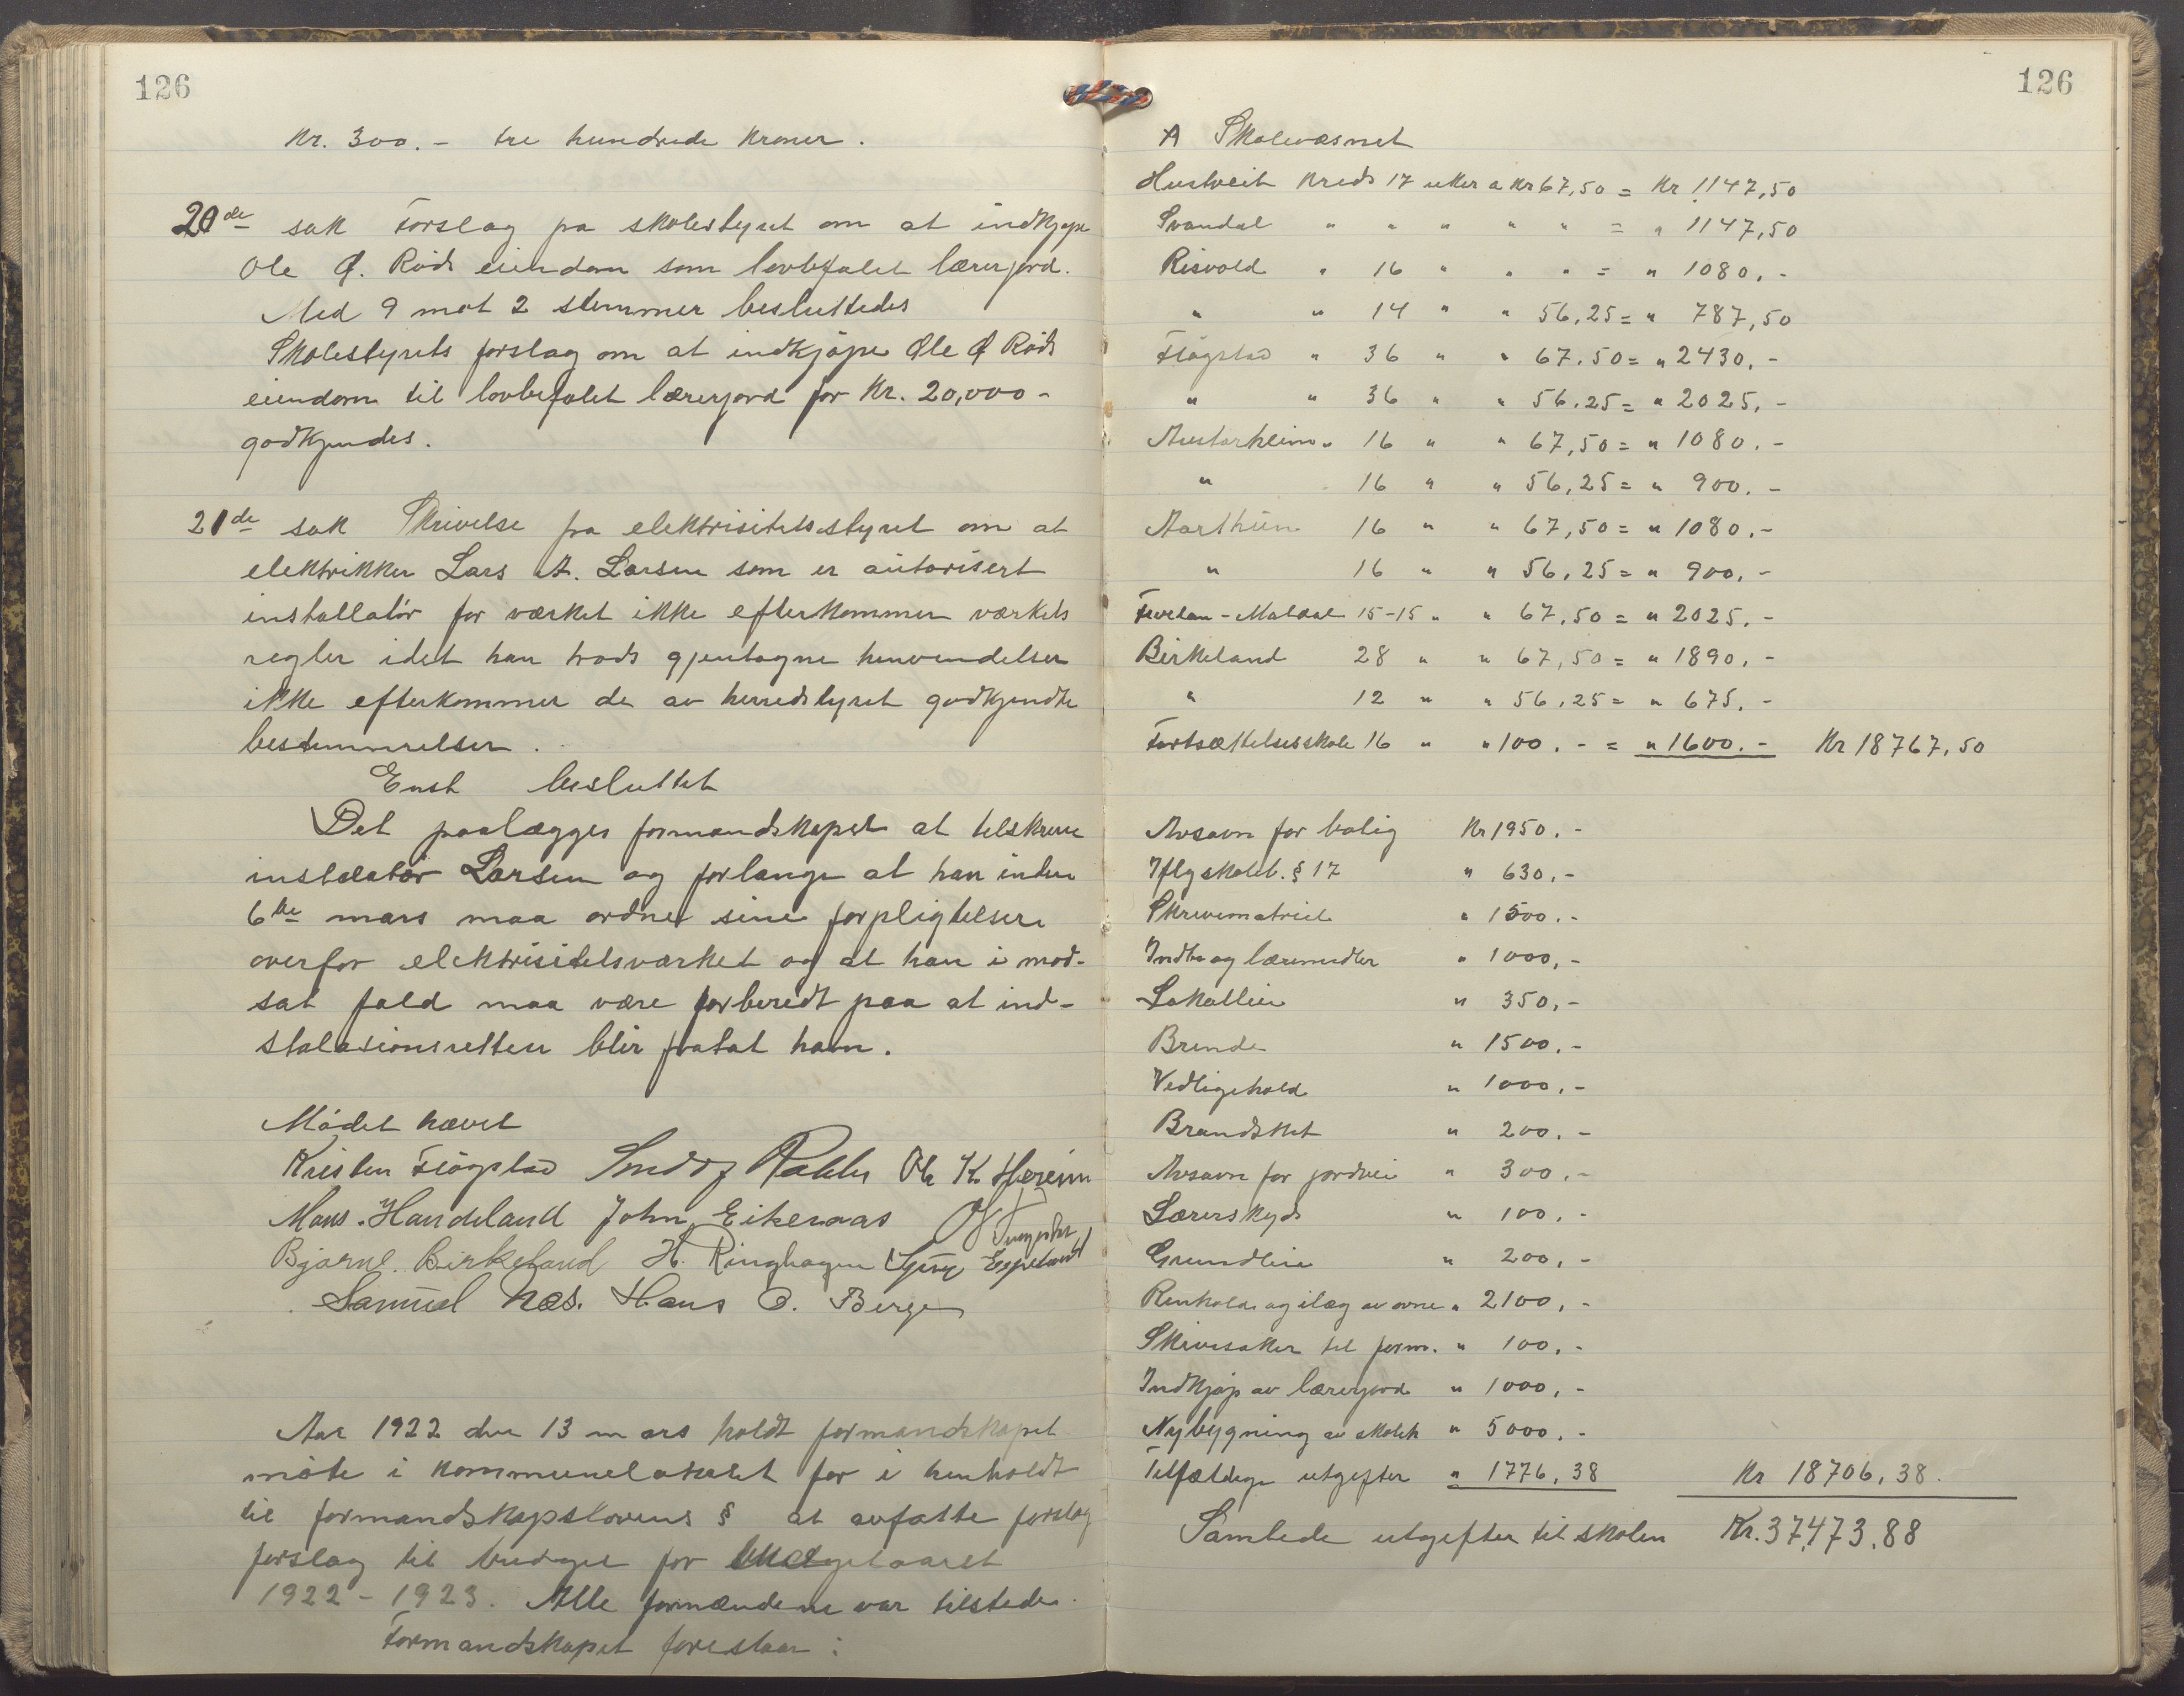 126
Kr. 300.- tre hundrede kroner.
20de sak Forslag fra skolestyret om at indkjøpe
Ole Ø. Røds eiendom som lovbefalet lærerjord.
Med 9 mot 2 stemmer besluttedes
Skolestyrets forslag om at indkjøpe Ole Ø Røds
eiendom til lovbefalet lærerjord for Kr. 20,000-
godkjendes.
21de sak Skrivelse fra elektrisitetsstyret om at
elektrikker Lars A. Larsen som er autorisert
installatør for værket ikke efterkommer værkets
regler idet han trods gjentagne henvendelser
ikke efterkommer de av herredstyret godkjendte
bestemmelser.
Enst besluttet
Det paalægges formandskapet at tilskrive
instalatør Larsen og forlange at han inden
6te mars maa ordne sine forpligtelser
overfor elektrisitetsværket og at han i mod-
sat fald maa være forberedt paa at ind-
stalasionsretten blir fratat ham.
Mødet hævet
Kristen Fløgstad Ole K. Herheim
Mons. Handeland John Eikenæs
Bjarne. Birkeland H. Ringhagen Espeland
Samuel Næs. Hans O. Berge
Aar 1922 den 13 mars holdt formandskapet
møte i kommunelokalet for i henholdt
til formandskapslovens § at avfatte forslag
forslag til budget for budgetaaret
1922-1923. Alle formændene var tilstede.
Formandskapet foreslaar:
126
A Skolevæsnet
Hustveit Kreds 17 uker a Kr 67,50 = Kr 1147,50
Svandal " " " " " = " 1147,50
Risvold " 16 " " " = " 1080.-
" " 14 " " 56,25 = " 787,50
Fløgstad " 36 " " 67.50 = " 2430.-
" " 36 " " 56.25 = " 2025.-
Austarheim " 16 " " 67,50 = " 1080.-
" 16 " " 56,25 = " 900.-
Aarthun 16 " " 67,50 = " 1080.-
" 16 " " 56,25 = " 900.-
Fivelan - Maldal 15-15 " " 67,50 = " 2025.-
Birkeland 28 " " 67,50 = " 1890.-
" 12 " " 56,25 = " 675.-
Fortsættelsesskole 16 " " 100.- = " 1600.- Kr 18767,50
Avsavn for bolig Kr 1950.-
Iflg skolel. § 17 " 630.-
Skrivematriel " 1500.-
Indb og læremidler " 1000,-
Lokalleie " 350,-
Brende " 1500.-
Vedligehold " 1000.-
Brandskat " 200.-
Avsavn for jordvei " 300.-
Lærerskyds " 100.-
Grundleie " 200.-
Renhold og ilæg av ovne " 2100,-
Skrivesaker til form. " 100,-
Indkjøp av lærerjord " 1000,-
Nybygning av skoleh " 5000.-
Tilfældige utgifter " 1776,38 Kr 18706,38.
Samlede utgifter til skolen Kr. 37,473.88